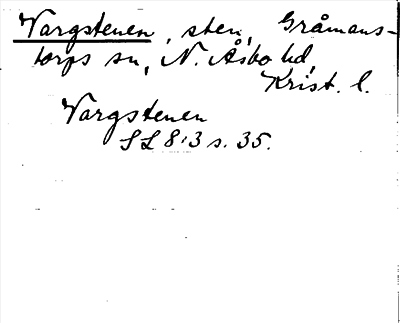 Vargstenen, sten, Gråmans-
torps sn, N. Åsbo hd,
Krist. l.
Vargstenen
SL 8:3 s. 35.